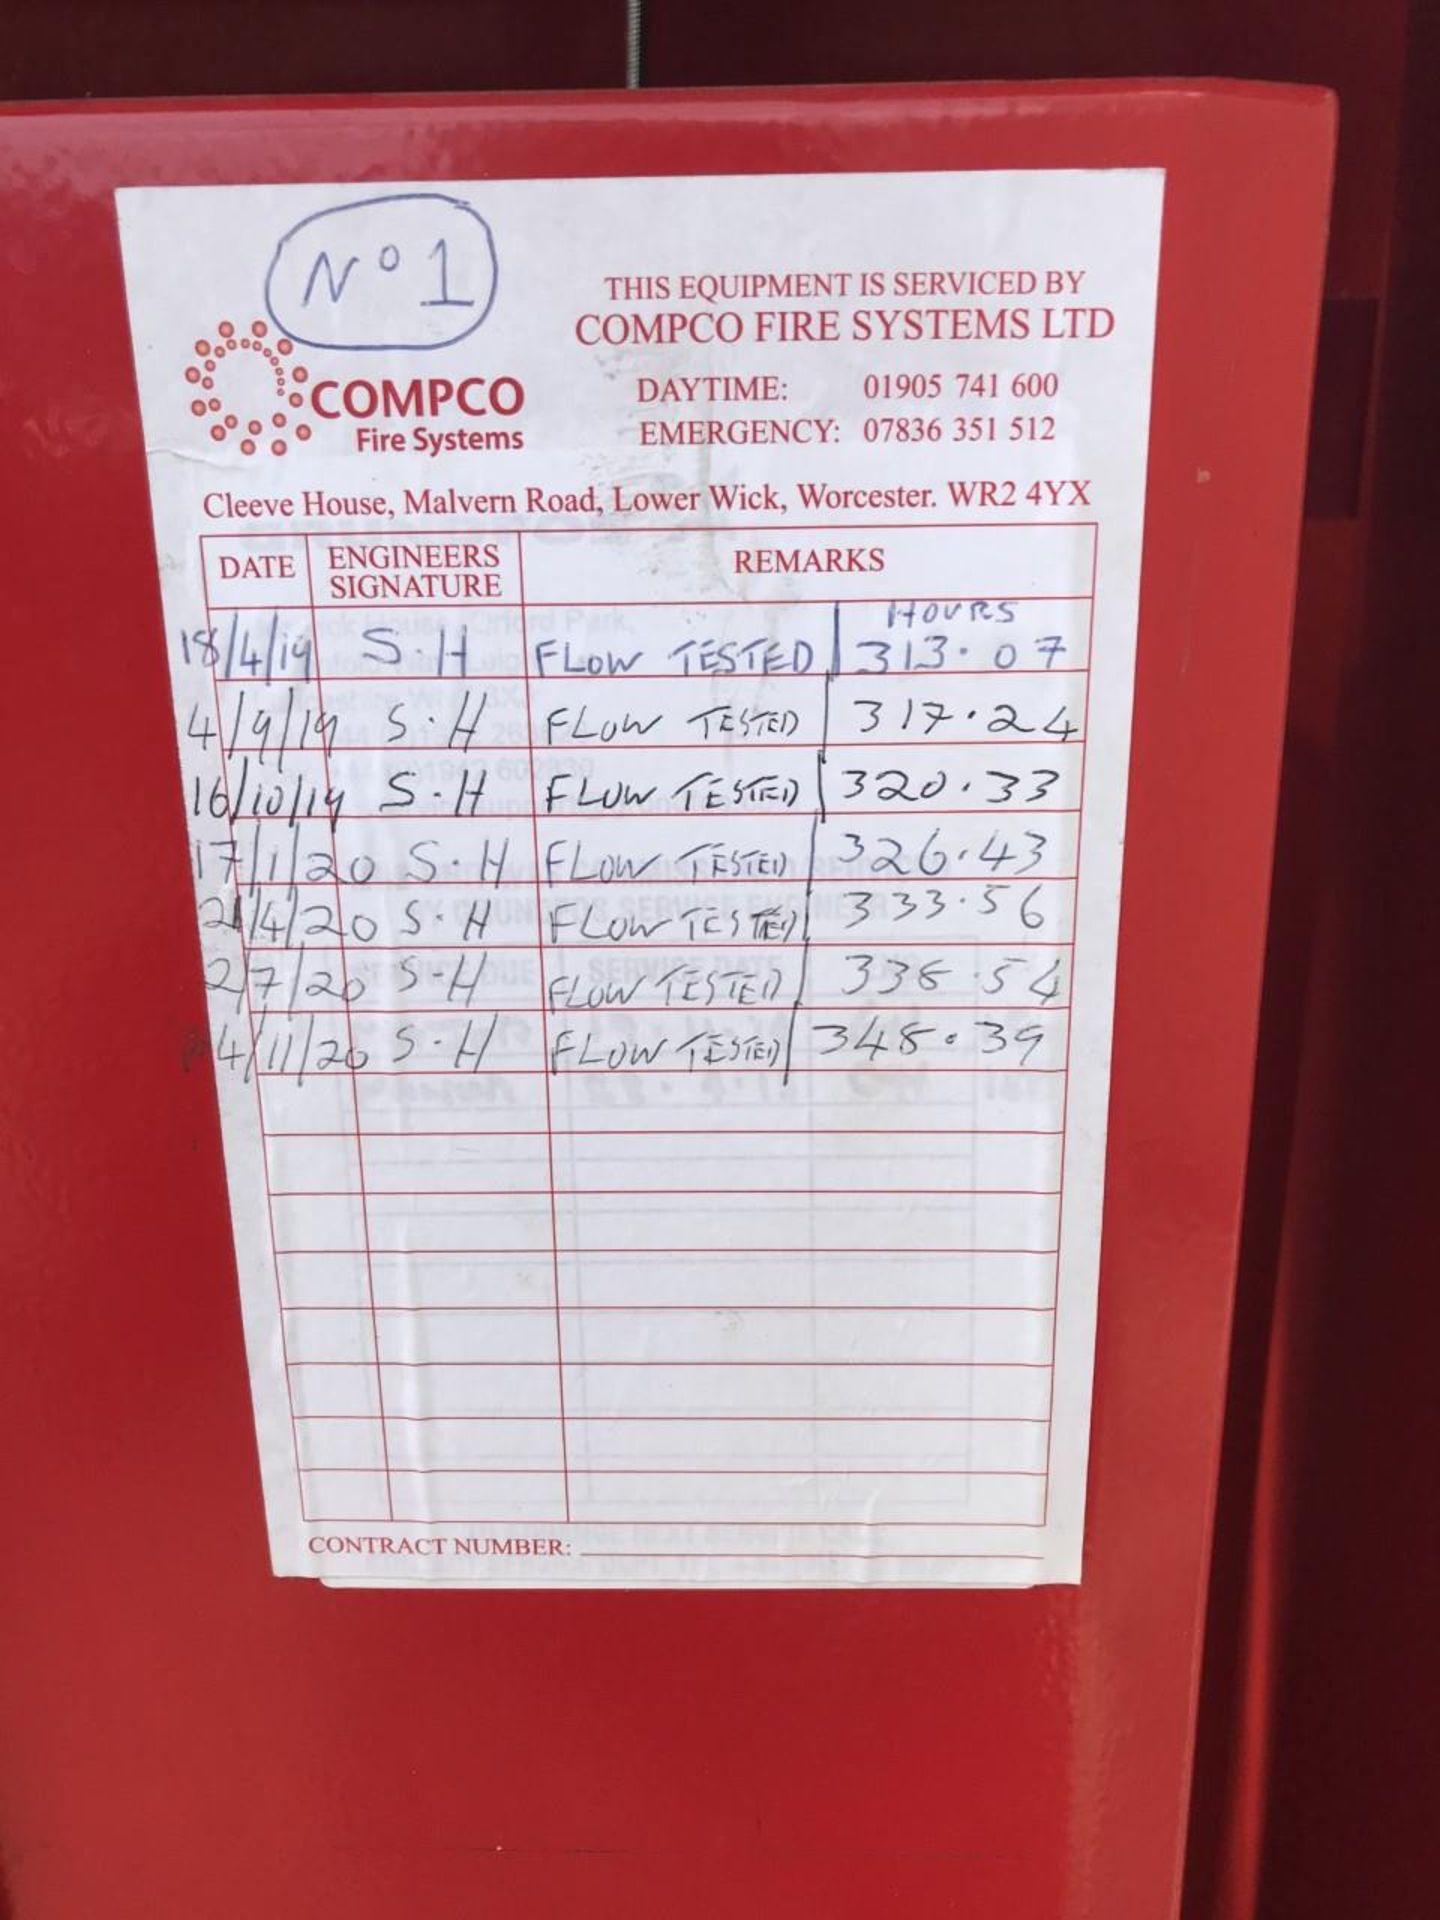 N° 1
COMPCO
Fire Systems
THIS EQUIPMENT IS SERVICED BY
COMPCO FIRE SYSTEMS LTD
DAYTIME: 01905 741 600
EMERGENCY: 07836 351 512
Cleeve House, Malvern Road, Lower Wick, Worcester. WR2 4YX
DATE ENGINEERS SIGNATURE REMARKS
HOURS
18/4/19 S.H FLOW TESTED 313.07
4/9/19 S.H FLOW TESTED 317.24
16/10/19 S.H FLOW TESTED 320.33
17/1/20 S.H FLOW TESTED 326.43
21/4/20 S.H FLOW TESTED 333.56
2/7/20 S.H FLOW TESTED 338.54
4/11/20 S.H FLOW TESTED 348.39
CONTRACT NUMBER: